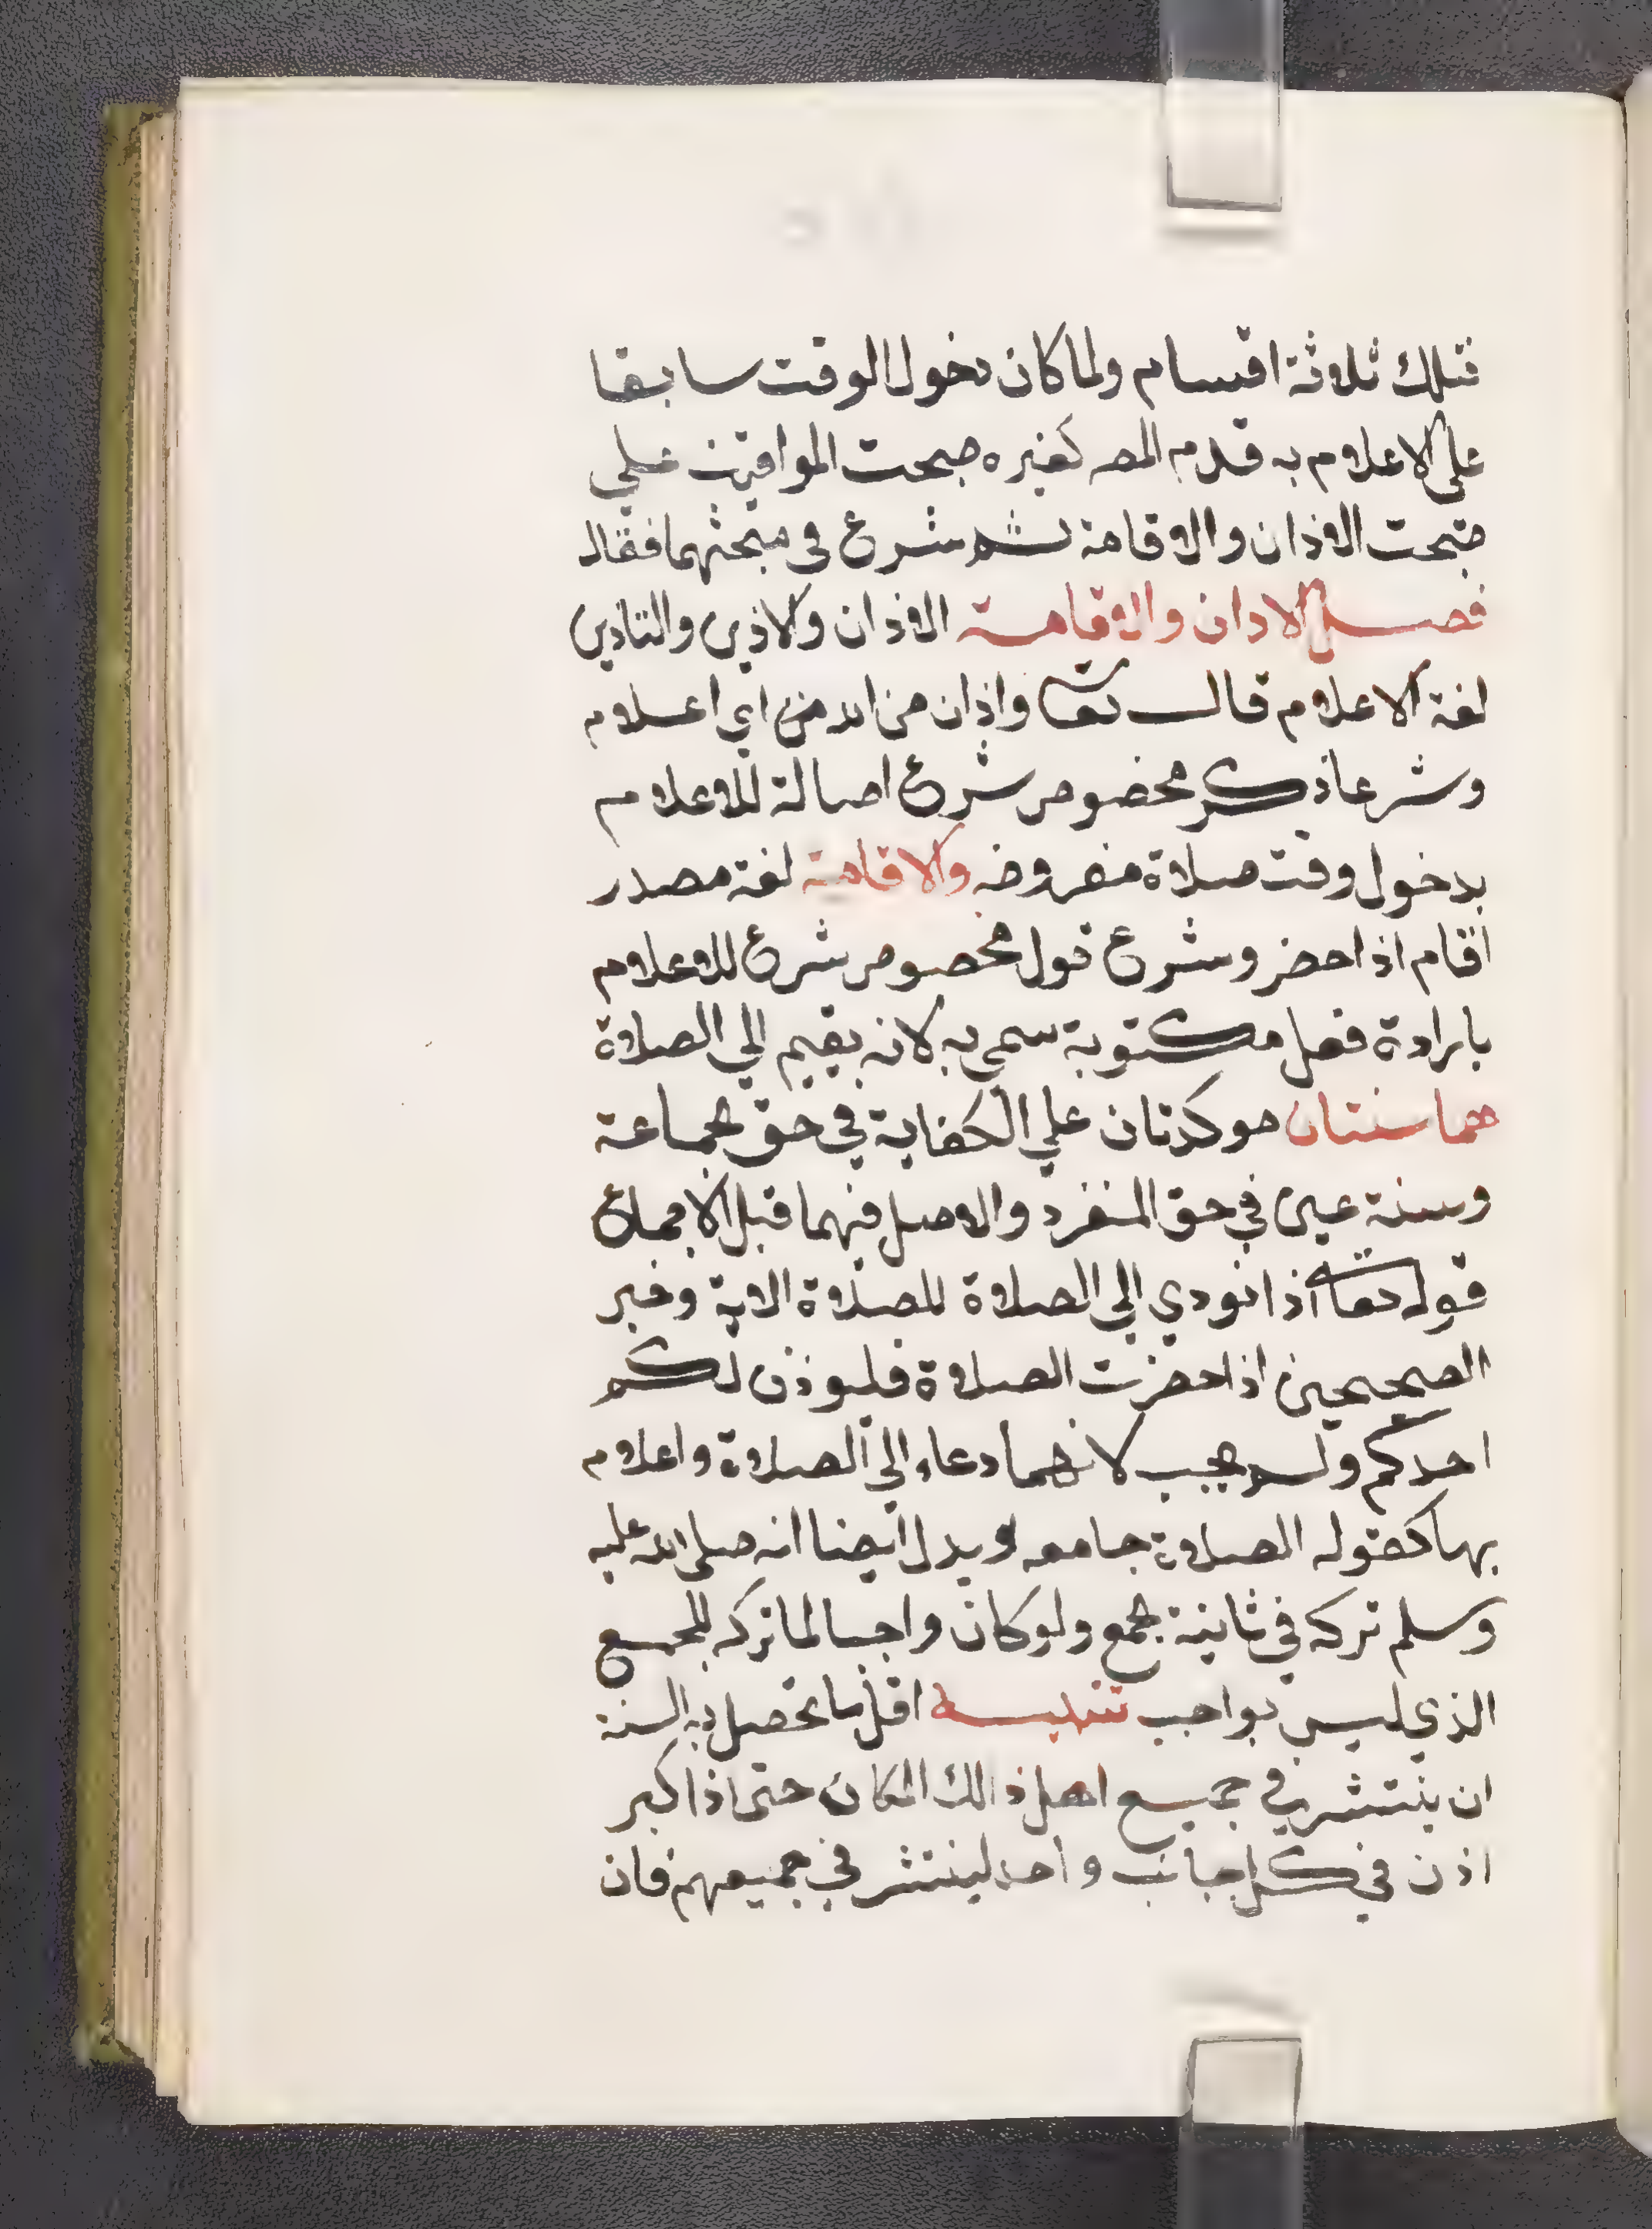 فتلك ثلاثة اقسام ولما كان دخول الوقت سابقا
على الاعلام به قدم المصـ كغيره مبحث المواقيت علي
مبحث الاذان والاقامة ثم شرع في مبحثهما فقال
فصل الاذان والاقامة الاذان والاذين والتاذين
لغة الاعلام قال تعالى واذان من الله من اي اعلام
وشرعا ذكر مخصوص شرع اصالة للاعلام
بدخول وقت صلاة مفروضه والاقامة لغة مصدر
اقام اذا حضر وشرع قول مخصوص شرع للاعلام
بارادة فعل مكتوبة سمي به لانه يقيم الي الصلاة
هما سنتان موكدتان علي الكفاية في حق الجماعة
وسنة عين في حق المنفرد والاصل فيهما قبل الاجماع
قوله تعالى اذا نودي الي الصلاة للصلاة الاية وخبر
الصحيحين اذا حضرت الصلاة فليوذن لكم
احدكم ولم يجب لانهما دعاء الي الصلاة واعلام
بها كقوله الصلاة جامعه ويدل ايضا انه صلى الله عليه
وسلم تركه في ثانية الجمع ولو كان واجبا لما تركه للجمع
الذي ليس بواجب تنبيه اقل ما تحصل به السنة
ان ينتشر في جميع اهل ذالك المكان حتى اذا كبر
اذن في كل جانب واحد لينتشر في جميعهم فان